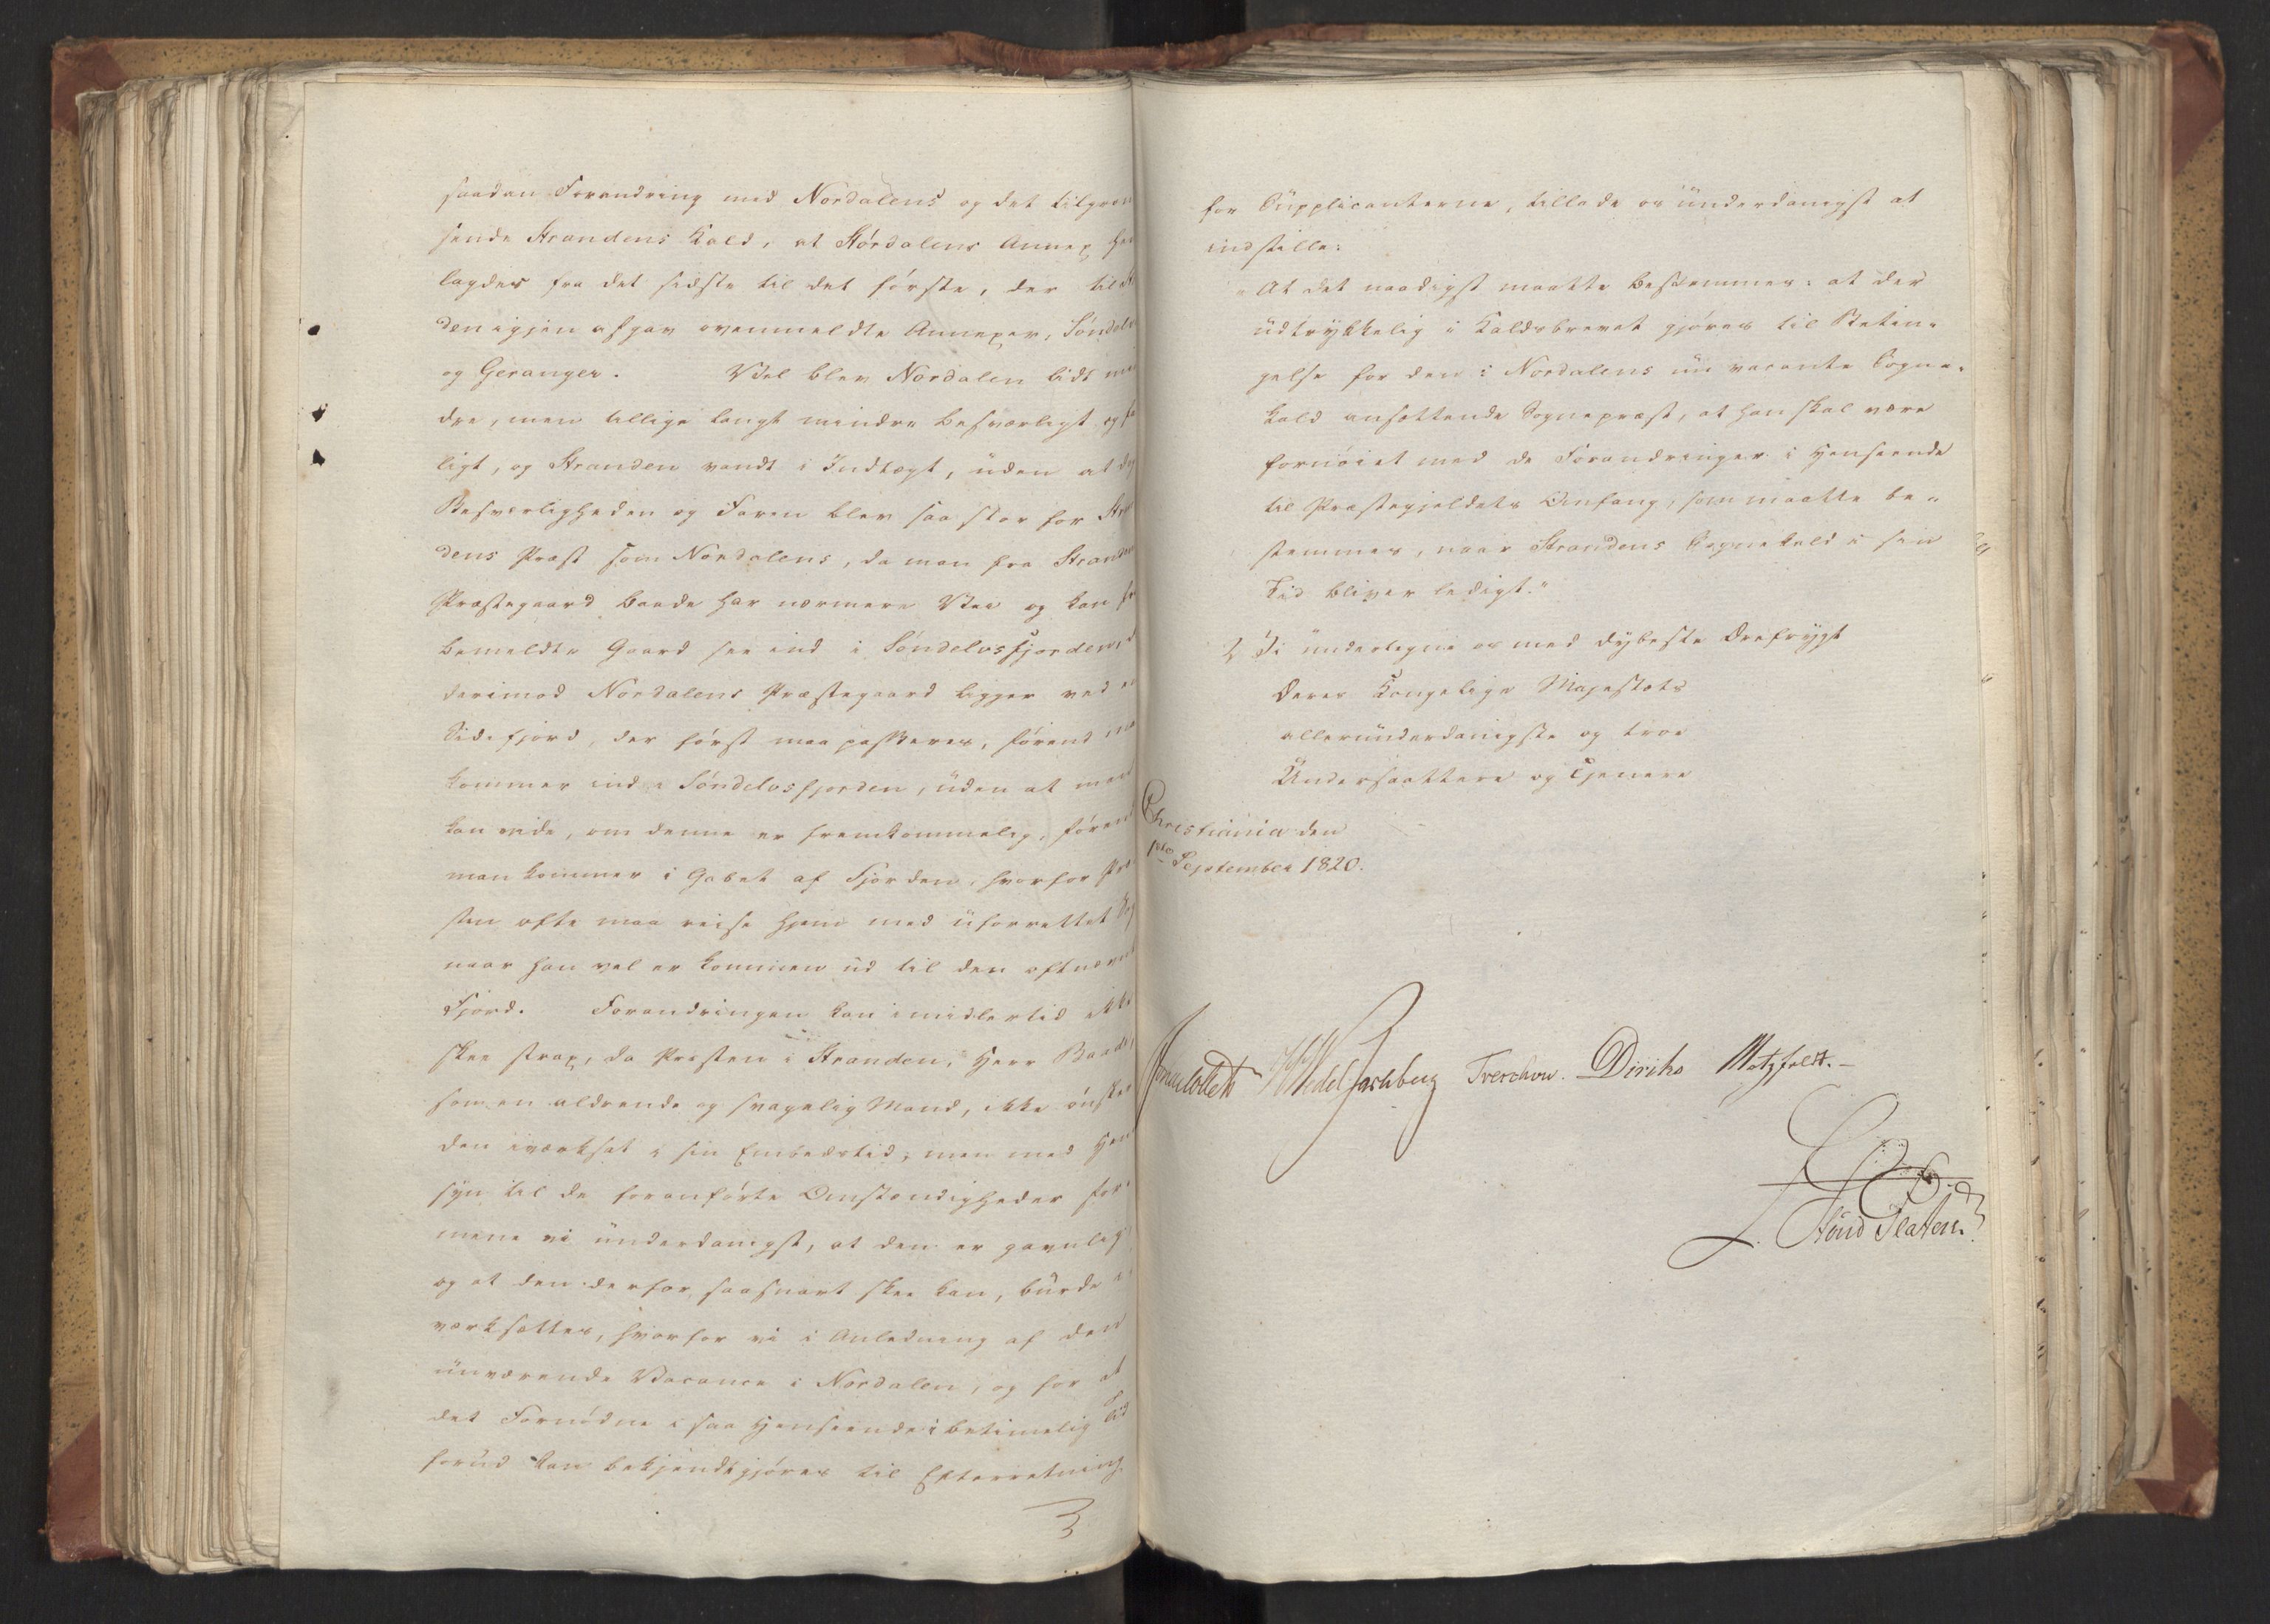 saadan Forandring med Nordalens og det tilgræn
sende Strandens Kald, at Stórdalens Annex hen
lagdes fra det sidste til det fórste, der til
den igjen afgav ovenmeldte Annexer, Sóndelv
og Geranger. Vel blev Nordalen lidt min
dre, men tillige langt mindre besværligt og
ligt, og Stranden vandt i Indtægt, uden at
Besværligheden og Faren blev saa stor for Stran
dens Præst som Nordalens, da man fra Stranden
Præstegaard baade har nærmere Vei og kan fra
bemeldte Gaard see ind i Sóndelvsfjorden,
derimod Nordalens Præstegaard ligger ved en
Sidefjord, der fórst maa passeres, fórend man
kommer ind i Sóndelvsfjorden, uden at man
kan vide, om denne er fremkommelig, fórend
man kommer i Gabet af Fjorden, hvorfor Præ
sten ofte maa reise hjem med uforrettet Sag
naar han vel er kommen ud til den oftnævnte
Fjord. Forandringen kan imidlertid ikke
skee strax, da Præsten i Stranden, Herr Baade,
som en aldrende og svagelig Mand, ikke ónsker
den iværksat i sin Embedstid, men med Hen
syn til de foranfórte Omstændigheder for
mene vi underdanigst, at den er gavnlig
og at den derfor, saasnart skee kan, burde i
værksættes, hvorfor vi i Anledning af den
nuværende Vacance i Nordalen, og for at
det Fornódne i saa Henseende i betimelig Tid
forud kan bekjendtgjóres til Efterretning
for Supplicanterne, tillade os underdanigst at
indstille:
"At det naadigst maatte bestemmes: at der
udtrykkelig i Kaldsbrevet gjóres til Betin-
gelse for den i Nordalens nu vacante Sogne-
kald ansættende Sognepræst, at han skal være
fornóiet med de Forandringer i Henseende
til Præstegjeldets Omfang, som maatte be-
stemmes, naar Strandens Sognekald i sin
Tid bliver ledigt."
Vi underlegne os med dybeste Ærefrygt
Deres Kongelige Majestæts
allerunderdanigste og troe
Undersaattere og Tjenere
Christiania den
1ste September 1820.
Wedel Jarlsberg Treschow. Diriks Motzfeldt.